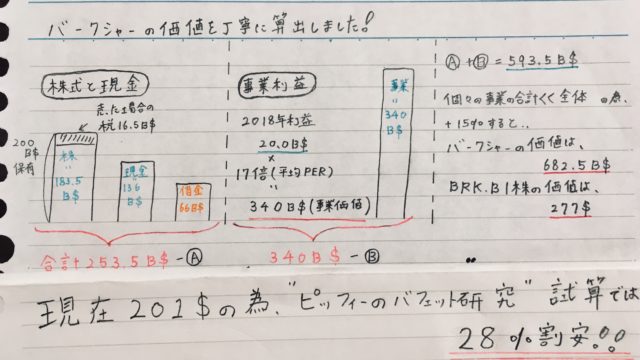 バークシャーの価値を丁寧に算出しました!
株式と現金
売った場合の
税16.5B$
200
B$
保有
株
=
183.5
B$
現金
136
B$
借金
66B$
合計+253.5B$-Ⓐ
事業利益
2018年利益
20.0B$
×
17倍(平均PER)
=
340B$(事業価値)
事業
=
340
B$
340B$-Ⓑ
Ⓐ+Ⓑ=593.5B$
個々の事業の合計<<全体の為、
+15%すると..
バークシャーの価値は、
682.5B$
BRK.B1株の価値は、
277$
現在201$の為、"ピッフィーのバフェット研究"試算では
28%割安!!